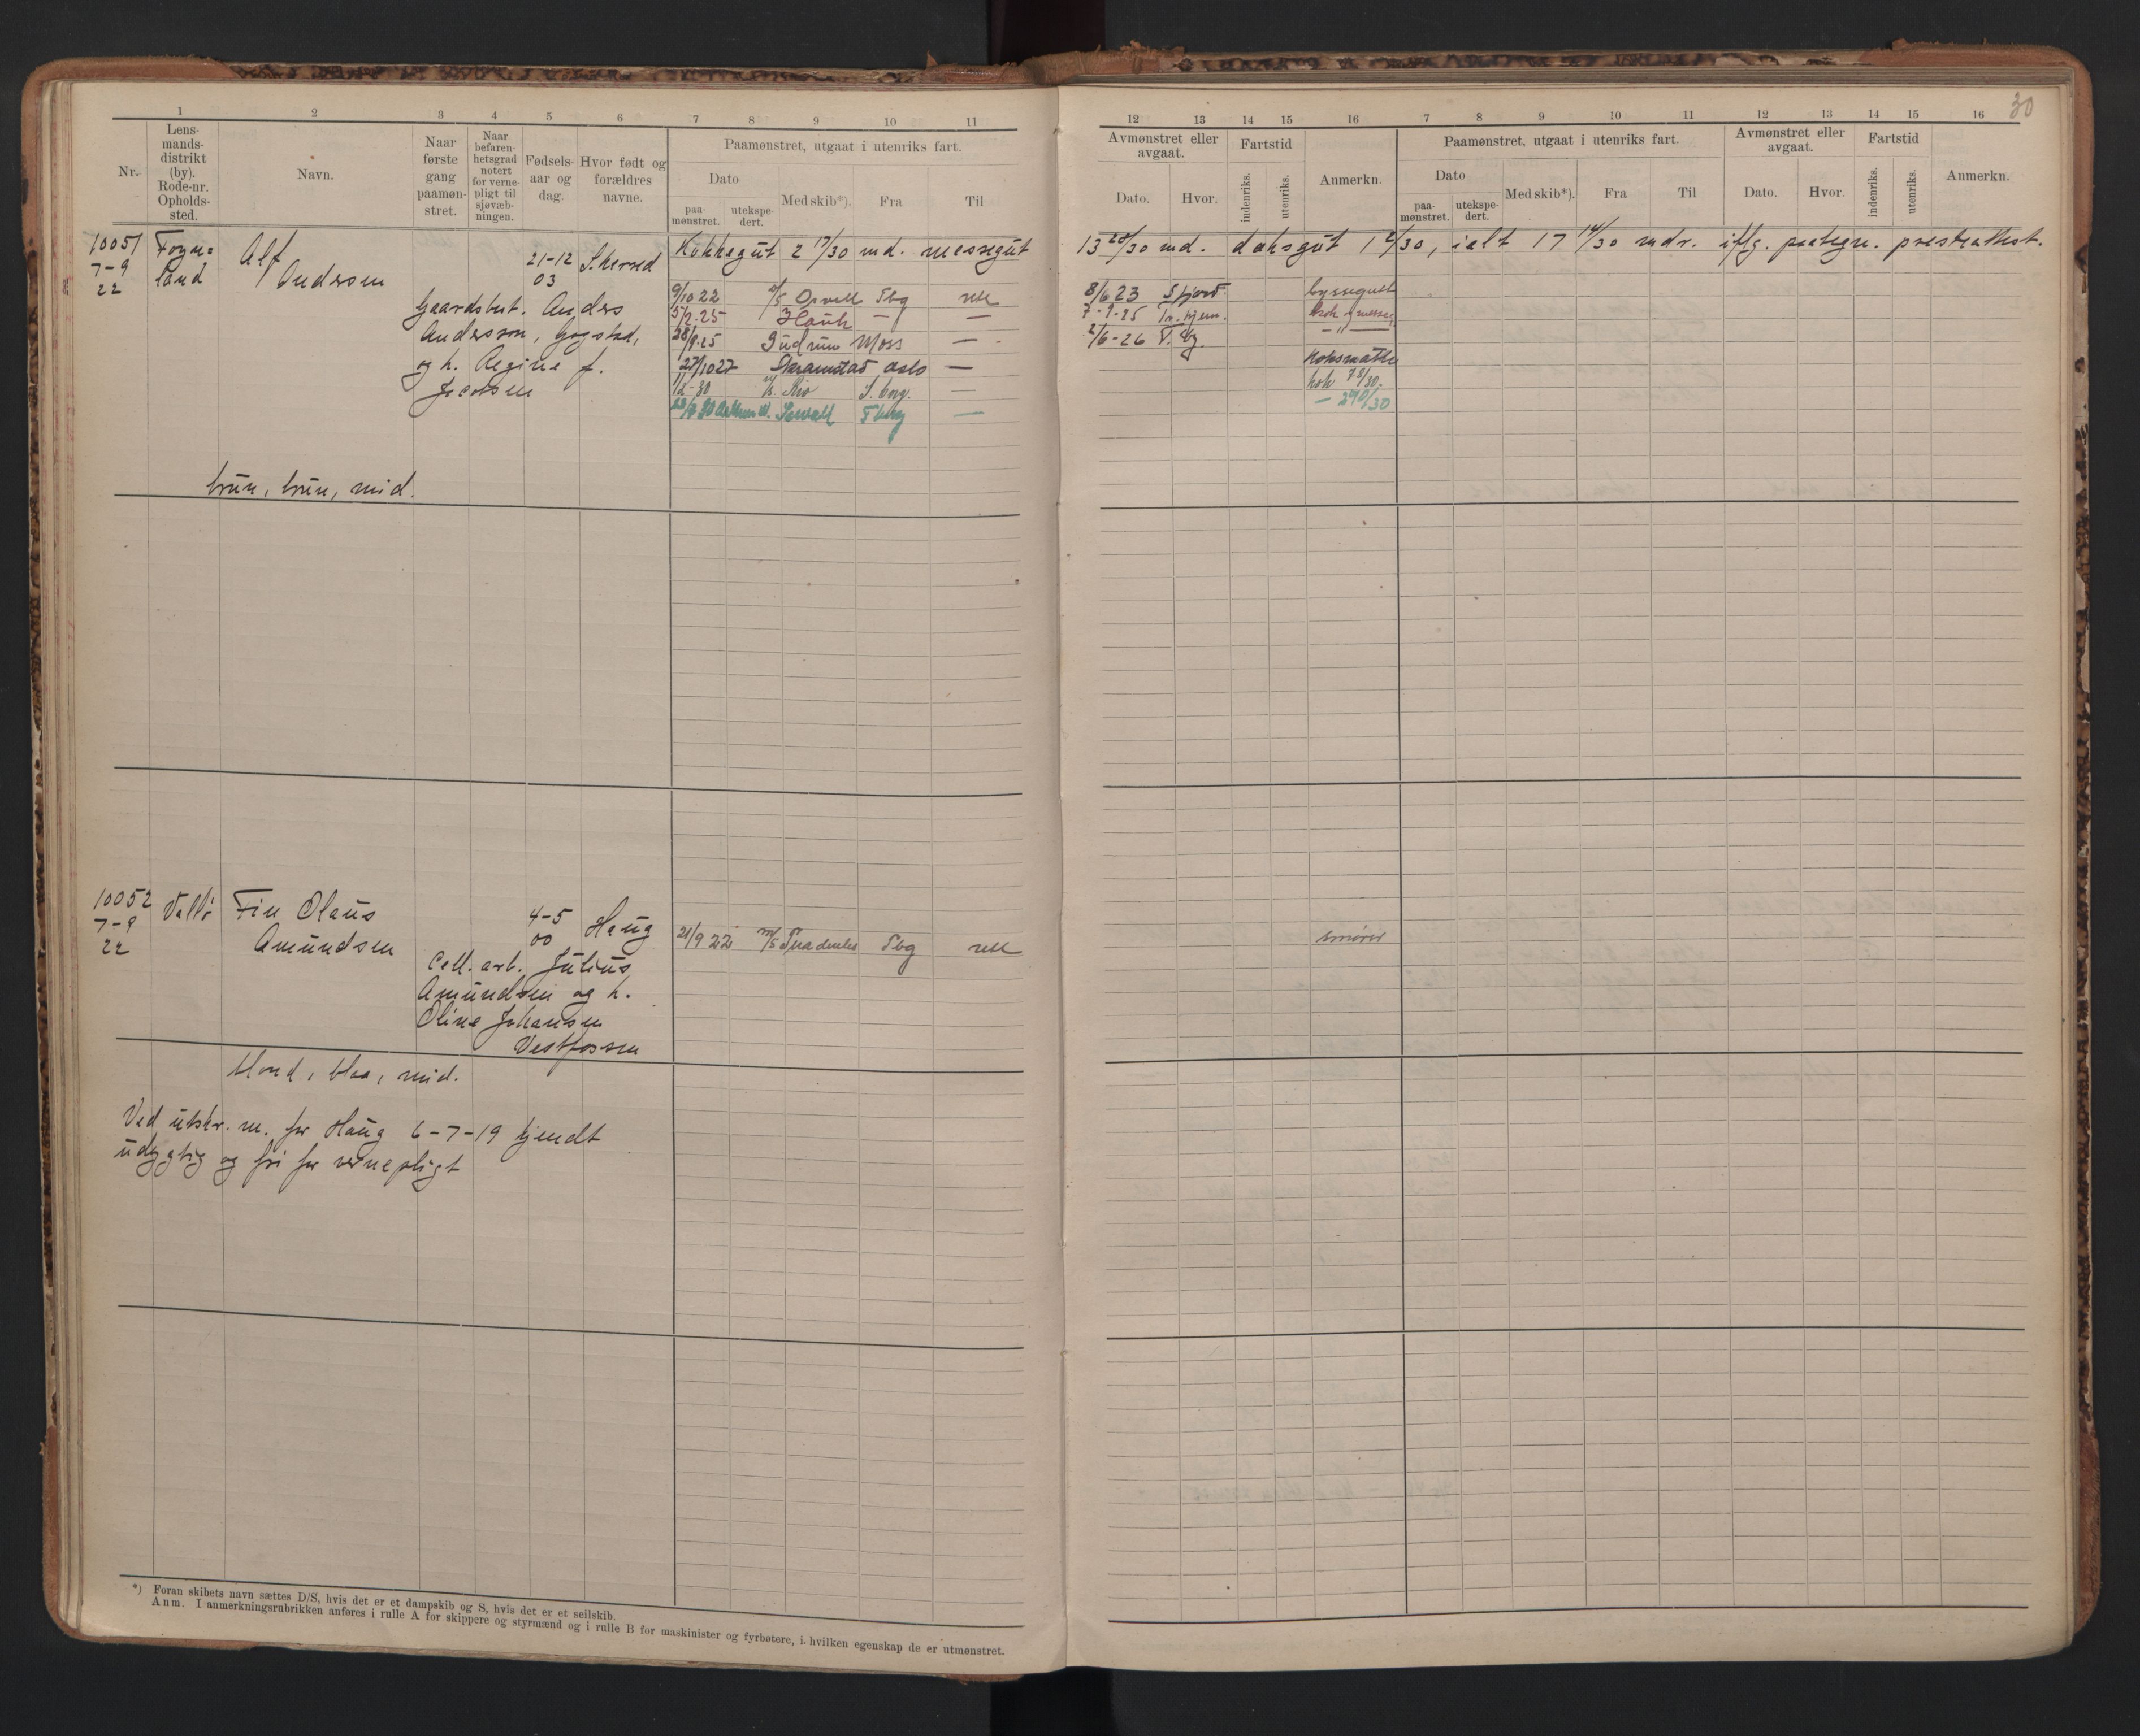 30
1 2 3 4 5 6 7 8 9 10 11
12 13 14 15 16 7 8 9 10 11 12 13 14 15 16
Nr.
Lens-
mands-
distrikt
(by).
Rode-nr.
Opholds-
sted.
Navn.
Naar
første
gang
paamøn-
stret.
Naar
befaren-
hetsgrad
notert
for verne-
pligt til
sjøvæb-
ningen.
Fødsels-
aar og
dag.
Hvor født og
forældres
navne.
Paamønstret, utgaat i utenriks fart.
Dato
paa-
mønstret.
utekspe-
dert.
Med skib*).
Fra
Til
Avmønstret eller
avgaat.
Dato.
Hvor.
Fartstid
indenriks.
utenriks.
Anmerkn.
Paamønstret, utgaat i utenriks fart.
Dato
paa-
mønstret.
utekspe-
dert.
Med skib*).
Fra
Til
Avmønstret eller
avgaat.
Dato.
Hvor.
Fartstid
indenriks.
utenriks.
Anmerkn.
10051
7-9
22
Alf
Andersen
21-12
03
Kokkegut 2 17/30 md. messegut
13 25/30 md. daksgut 1 2/30, ialt 17 14/30 mdr. iflg. paategn. presteattest.
Gaardsbest. Anders
Andersson, Gogstad,
og h. Regine f.
Jacobsen
9/10 22 Tbg
8/6 23 byssegut
5/2-25 Hauk —
7-9-25
28/9 25 Gudrun Moss —
2/6-26 T.bg. — " —
27/10 27 Skramstad Oslo —
Koksmath
Rio S.borg.
kok
Sewall Tberg —
— 290/30
brun, brun, mid.
10052
7-9
22
Vallø
Fin Olaus
Amundsen
4-5
00
Haug
Cell. arb. Julius
Amundsen og h.
Oline Johansen
Vestfossen
21/9 22 Tbg
smører
blond, blaa, mid.
Ved utskr. m. for Haug 6-7-19 kjendt
udygtig og fri for vernepligt
*) Foran skibets navn sættes D/S, hvis det er et dampskib og S, hvis det er et seilskib.
Anm. I anmerkningsrubrikken anføres i rulle A for skippere og styrmænd og i rulle B for maskinister og fyrbøtere, i hvilken egenskap de er utmønstret.